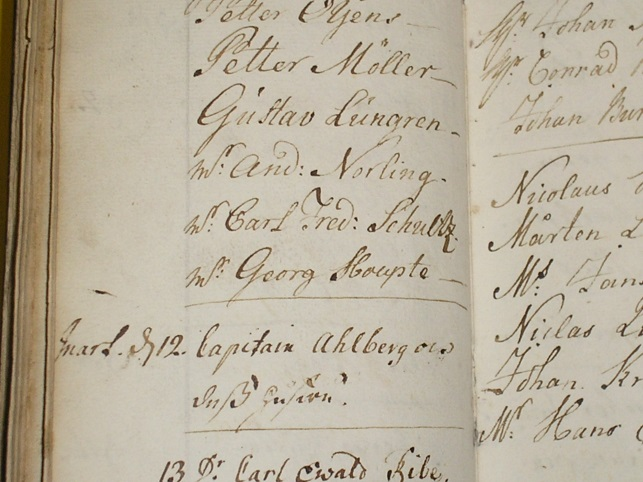 Petter Öijens
Petter Möller
Gustav Lüngren
Mr. And: Norling.
Mr. Carl Fred: Schultz.
Mr. Georg Houpte
12. Capitain Ahlberg och
13 Dr Carl Ewald Ribe.
Johan
Conrad
Johan
Nicolaus
Mårten
Ms.
Niclas
Johan
Mr. Hans